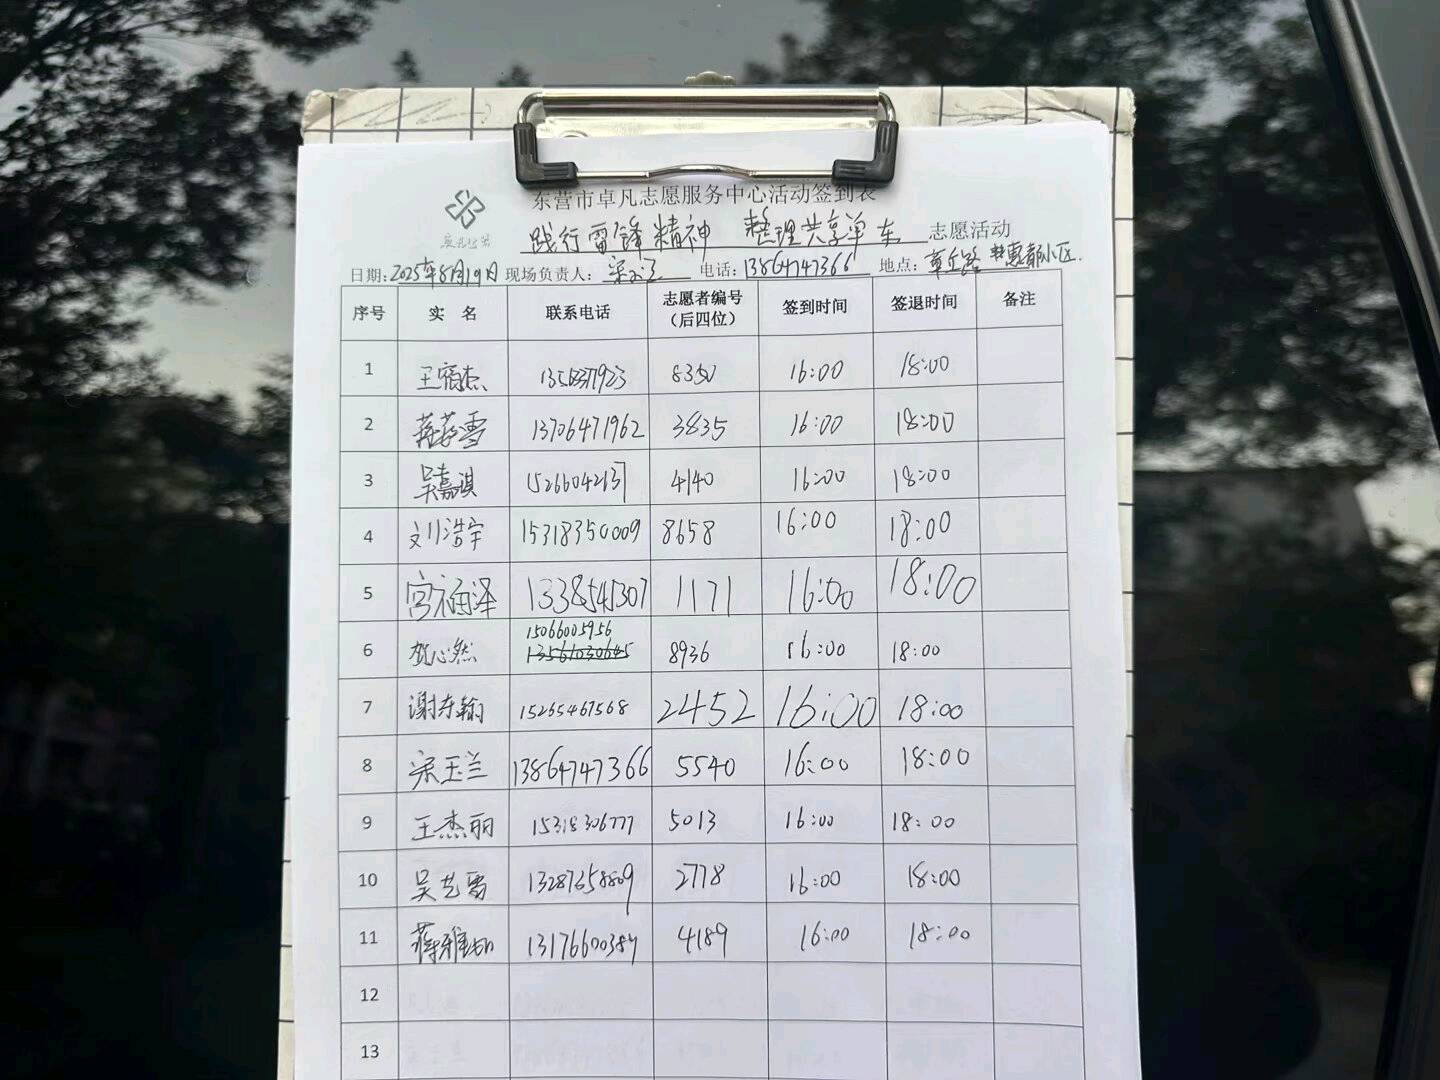 东营市卓凡志愿服务中心活动签到表
践行雷锋精神 整理共享单车 志愿活动
日期:2025年8月19日 现场负责人: 宋玉兰 电话:13864747366 地点: 惠都小区.
序号 实 名 联系电话 志愿者编号(后四位) 签到时间 签退时间 备注
1 王 杰 8350 16:00 18:00
2 蒋 雪 13706471962 3835 16:00 18:00
3 吴嘉淇 15266042137 4140 16:00 18:00
4 刘浩宇 15318350009 8658 16:00 18:00
5 宫 泽 1338545307 1171 16:00 18:00
6 贺心然 15066005956 13561030645 8936 16:00 18:00
7 谢东翰 15265467568 2452 16:00 18:00
8 宋玉兰 13864747366 5540 16:00 18:00
9 王杰丽 15318306777 5013 16:00 18:00
10 吴艺雪 13287658809 2778 16:00 18:00
11 蒋雅 13176600387 4189 16:00 18:00
12
13